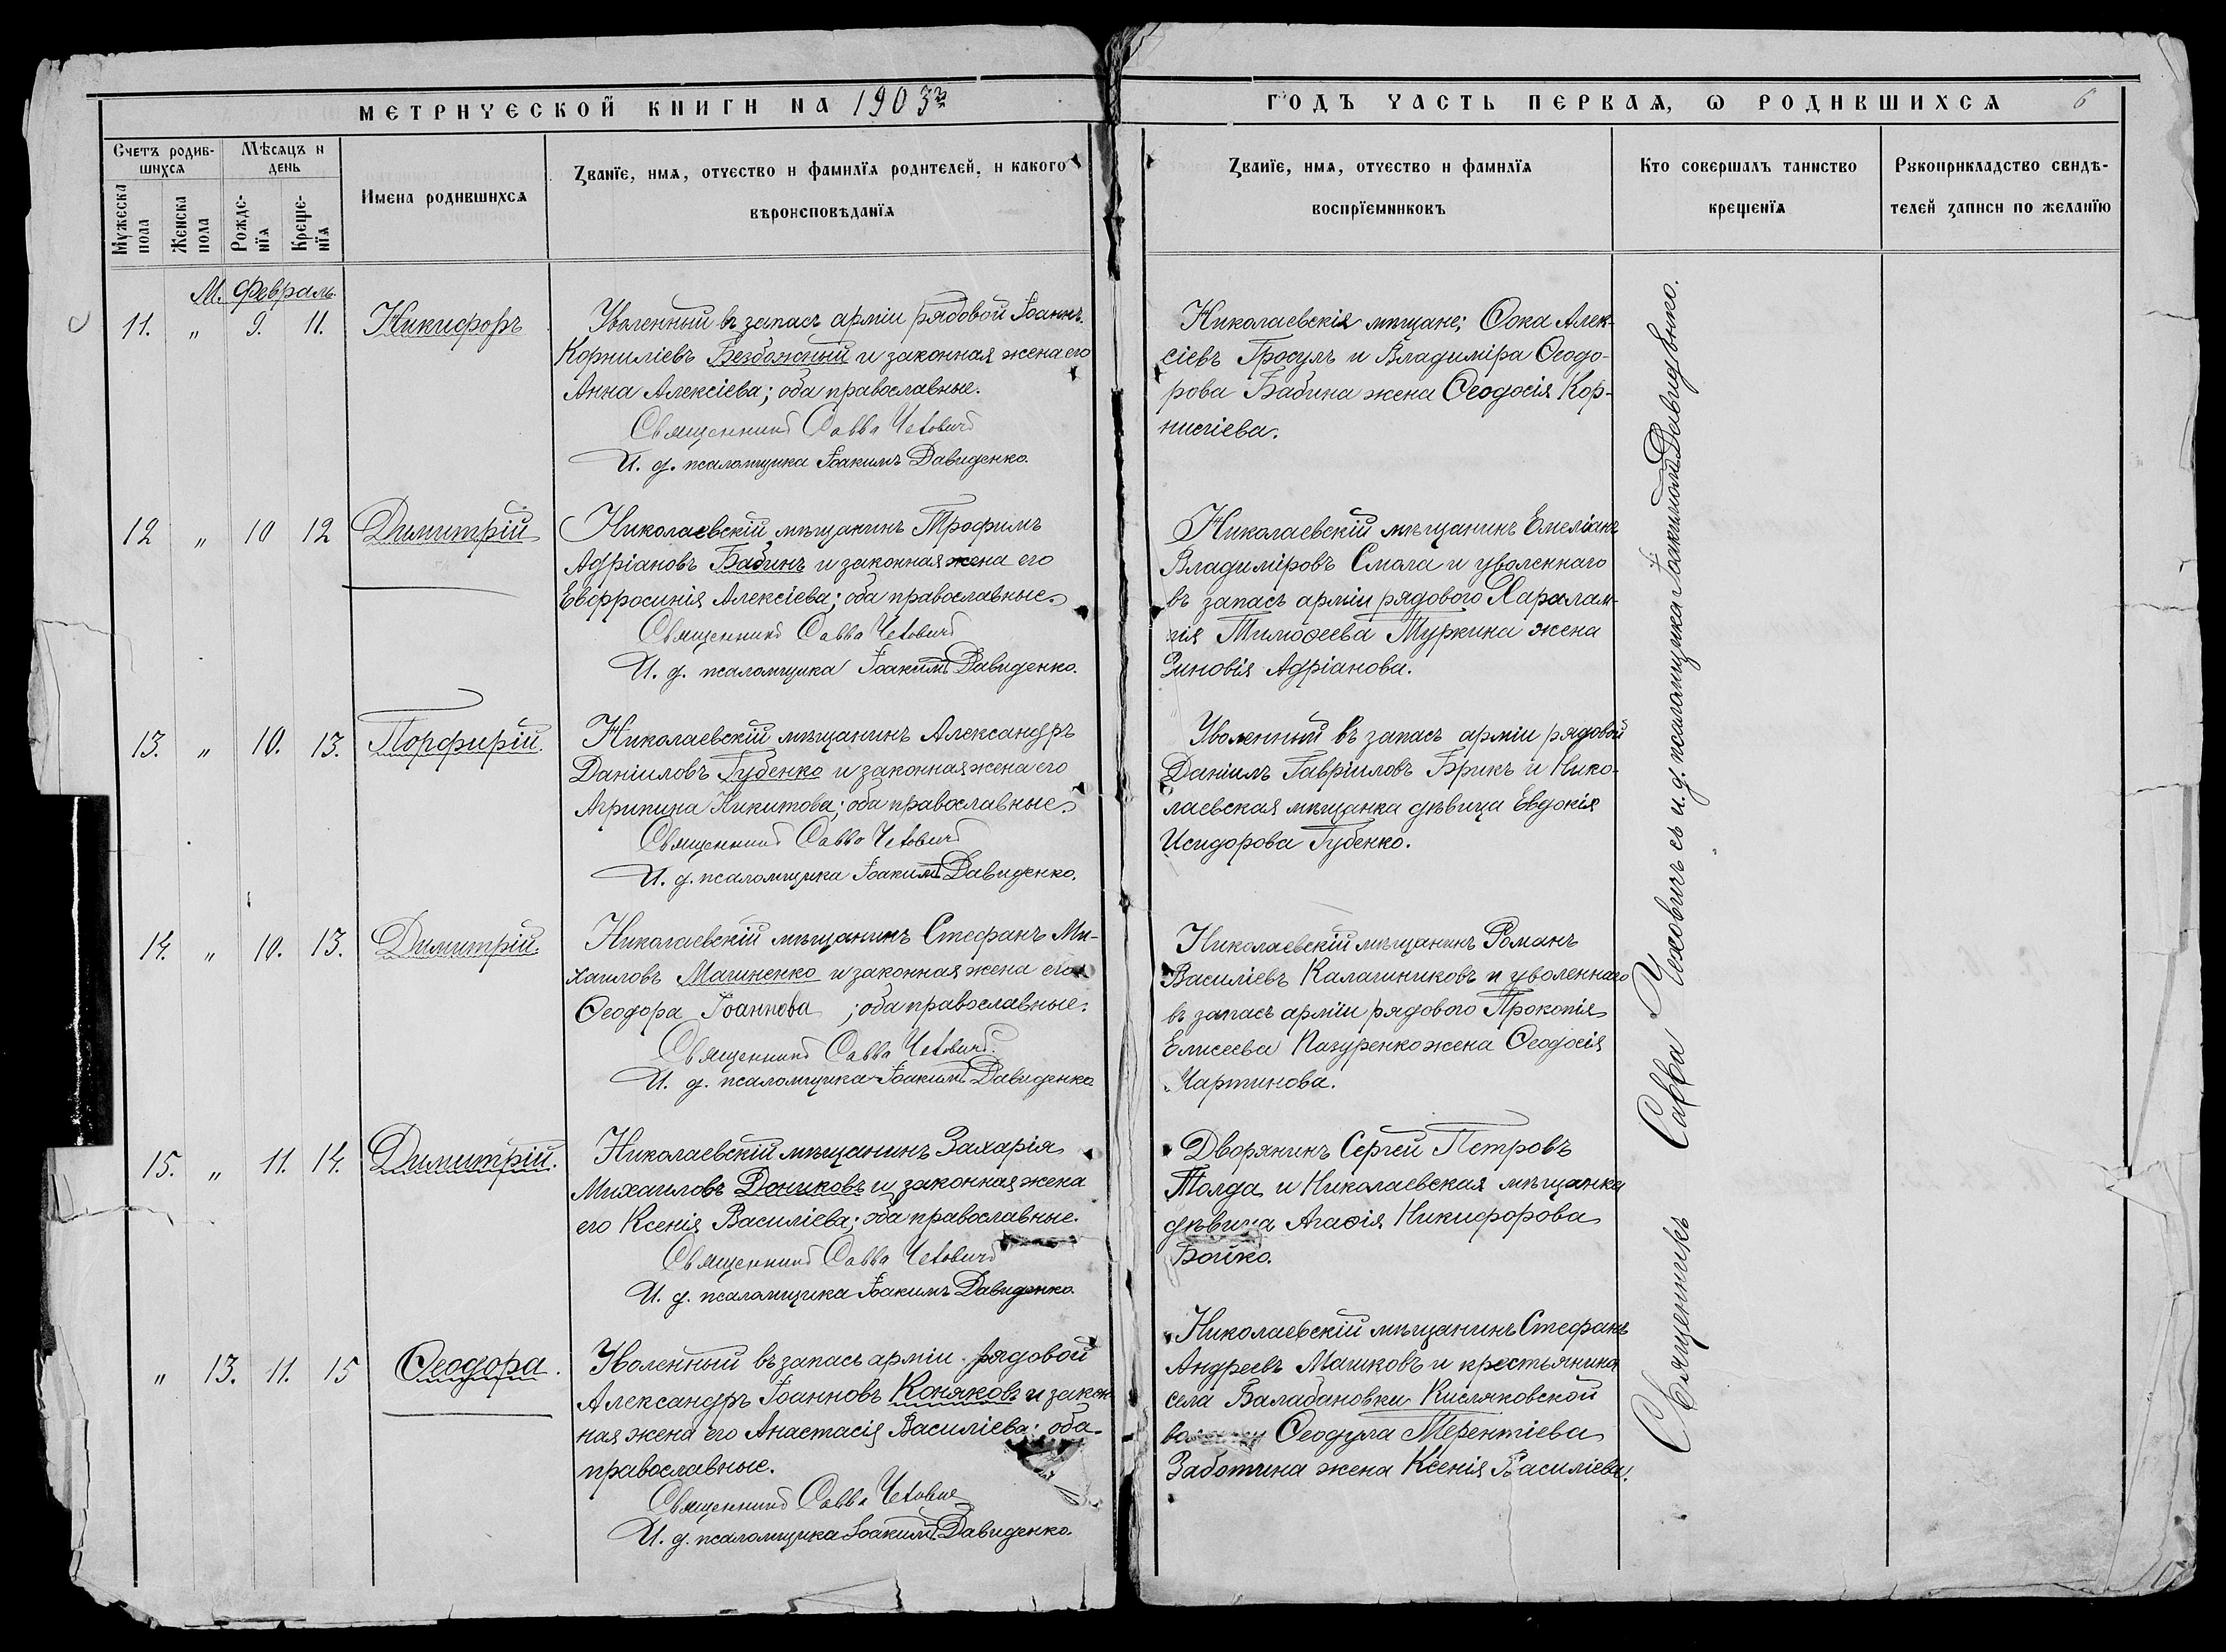 МЕТРИЧЕСКОЙ КНИГИ НА 1903й
Счетъ родив-
шихся
Мѣсяцъ и
день
Мужеска
пола
Женска
пола
Рожде-
нїя
Креще-
нїя
Имена родившихся
Званїе, имя, отчество и фамилїя родителей, и какого
вѣроисповѣданїя
М. Февраль.
11. " 9. 11. Никифоръ
Уволенный въ запасъ арміи рядовой Іоаннъ
Корниліевъ Безбожный и законная жена его
Анна Алексіева; оба православные.
Священникъ Савва Чеховичъ
И. д. псаломщика Іоакимъ Давиденко.
12 " 10 12 Димитрій
Николаевскій мѣщанинъ Трофимъ
Адріановъ Бабинъ и законная жена его
Евфросинія Алексіева; оба православные.
Священникъ Савва Чеховичъ
И. д. псаломщика Іоакимъ Давиденко.
13. " 10. 13. Порфирій.
Николаевскій мѣщанинъ Александръ
Даніиловъ Губенко и законная жена его
Агрипина Никитова; оба православные.
Священникъ Савва Чеховичъ
И. д. псаломщика Іоакимъ Давиденко.
14. " 10. 13. Димитрій.
Николаевскій мѣщанинъ Стефанъ Ми-
хаиловъ Машненко и законная жена его
Ѳеодора Іоаннова ; оба православные.
Священникъ Савва Чеховичъ.
И. д. псаломщика Іоакимъ Давиденко
15. " 11. 14. Димитрій.
Николаевскій мѣщанинъ Захарія
Михаиловъ Дониковъ и законная жена
его Ксенія Василіева; оба православные.
Священникъ Савва Чеховичъ
И. д. псаломщика Іоакимъ Давиденко.
" 13. 11. 15 Ѳеодора.
Уволенный въ запасъ арміи рядовой
Александръ Іоанновъ Коняковъ и закон-
ная жена его Анастасія Василіева; оба
православные.
Священникъ Савва Чехович
И. д. псаломщика Іоакимъ Давиденко.
ГОДЪ ЧАСТЬ ПЕРВАЯ, Ѡ РОДИВШИХСЯ 6
Званїе, имя, отчество и фамилїя
воспрїемниковъ
Кто совершалъ таинство
крещенїя
Рукоприкладство свидѣ-
телей записи по желанїю
Николаевскія мѣщане; Ѳока Алек-
сіевъ Гросулъ и Владиміра Ѳеодо-
рова Бабина жена Ѳеодосія Кор-
ниліева.
Николаевскій мѣщанинъ Емеліанъ
Владиміровъ Смола и уволеннаго
въ запасъ арміи рядового Харалам-
пія Тимоѳеева Туркина жена
Зиновія Адріанова.
Уволенный въ запасъ арміи рядовой
Даніилъ Гавріиловъ Брикъ и Нико-
лаевская мѣщанка дѣвица Евдокія
Исидорова Губенко.
Николаевскій мѣщанинъ Романъ
Василіевъ Калашниковъ и уволеннаго
въ запасъ арміи рядового Прокопія
Елисеева Пазуренко жена Ѳеодосія
Мартинова.
Дворянинъ Сергей Петровъ
Толда и Николаевская мѣщанка
дѣвица Агаѳія Никифорова
Бойко.
Николаевскій мѣщанинъ Стефанъ
Андреевъ Машковъ и крестьянина
села Балабановки Кисляковской
волости Ѳеодула Терентіева
Заботина жена Ксенія Василіева.
Священникъ Савва Чеховичъ съ и. д. псаломщика Іоакимомъ Давиденко.